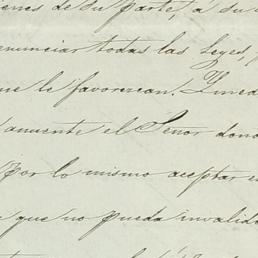 enes de su parte, á su
enunciar todas las leyes,
ue le favorecan. Y
anuente el Señor dono
Por lo mismo aceptar
que no pueda invalid